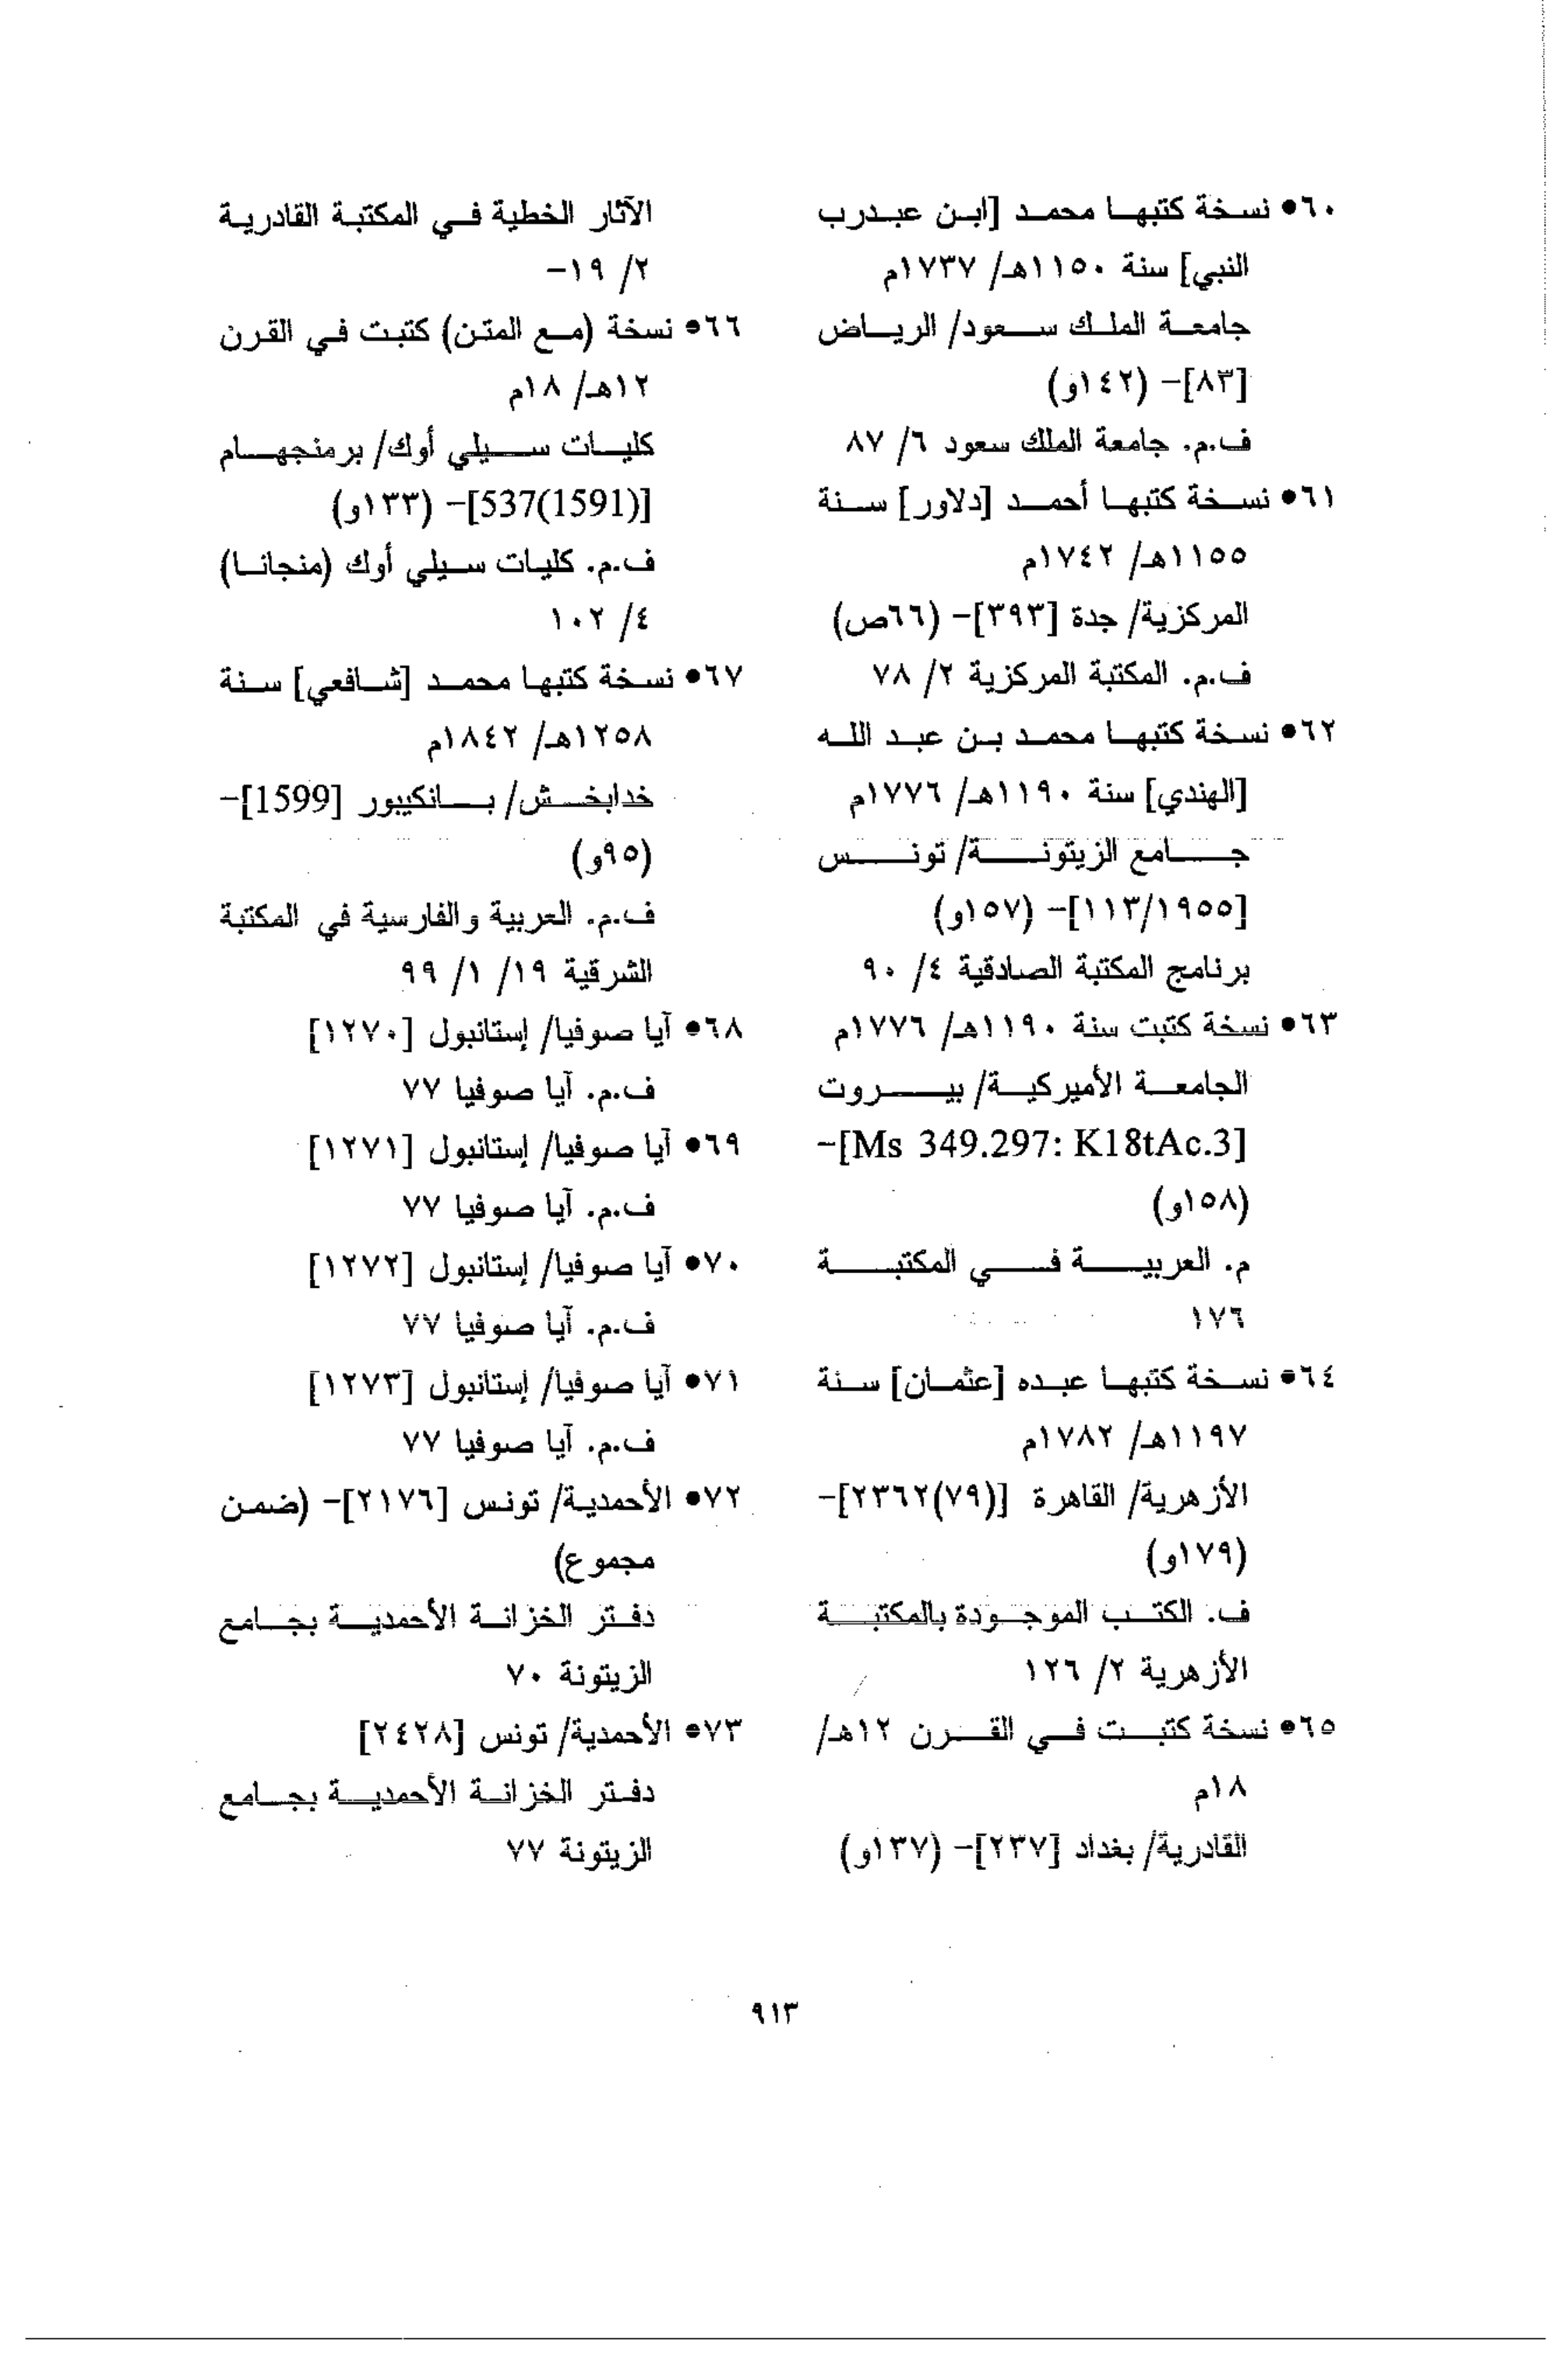 ٦٠• نسخة كتبها محمد [ابن عبدرب
النبي] سنة ١١٥٠هـ/ ١٧٣٧م
جامعة الملك سعود/ الرياض
[٨٣]– (١٤٢و)
ف.م. جامعة الملك سعود ٦/ ٨٧
٦١• نسخة كتبها أحمد [دلاور] سنة
١١٥٥هـ/ ١٧٤٢م
المركزية/ جدة [٣٩٣]– (٦٦ص)
ف.م. المكتبة المركزية ٢/ ٧٨
٦٢• نسخة كتبها محمد بن عبد الله
[الهندي] سنة ١١٩٠هـ/ ١٧٧٦م
جامع الزيتونة/ تونس
[١١٣/١٩٥٥]– (١٥٧و)
برنامج المكتبة الصادقية ٤/ ٩٠
٦٣• نسخة كتبت سنة ١١٩٠هـ/ ١٧٧٦م
الجامعة الأميركية/ بيروت
[Ms 349.297: K18tAc.3]–
(١٥٨و)
م. العربية في المكتبة
١٧٦
٦٤• نسخة كتبها عبده [عثمان] سنة
١١٩٧هـ/ ١٧٨٢م
الأزهرية/ القاهرة [(٧٩)٢٣٦٢]–
(١٧٩و)
ف. الكتب الموجودة بالمكتبة
الأزهرية ٢/ ١٢٦
٦٥• نسخة كتبت في القرن ١٢هـ/
١٨م
القادرية/ بغداد [٢٣٧]– (١٣٧و)
الآثار الخطية في المكتبة القادرية
٢/ ١٩–
٦٦• نسخة (مع المتن) كتبت في القرن
١٢هـ/ ١٨م
كليات سيلي أوك/ برمنجهام
[537(1591)]– (١٣٣و)
ف.م. كليات سيلي أوك (منجانا)
٤/ ١٠٢
٦٧• نسخة كتبها محمد [شافعي] سنة
١٢٥٨هـ/ ١٨٤٢م
خدابخش/ بانكيبور [1599]–
(٩٥و)
ف.م. العربية والفارسية في المكتبة
الشرقية ١٩/ ١/ ٩٩
٦٨• آيا صوفيا/ إستانبول [١٢٧٠]
ف.م. آيا صوفيا ٧٧
٦٩• آيا صوفيا/ إستانبول [١٢٧١]
ف.م. آيا صوفيا ٧٧
٧٠• آيا صوفيا/ إستانبول [١٢٧٢]
ف.م. آيا صوفيا ٧٧
٧١• آيا صوفيا/ إستانبول [١٢٧٣]
ف.م. آيا صوفيا ٧٧
٧٢• الأحمدية/ تونس [٢١٧٦]– (ضمن
مجموع)
دفتر الخزانة الأحمدية بجامع
الزيتونة ٧٠
٧٣• الأحمدية/ تونس [٢٤٢٨]
دفتر الخزانة الأحمدية بجامع
الزيتونة ٧٧
٩١٣